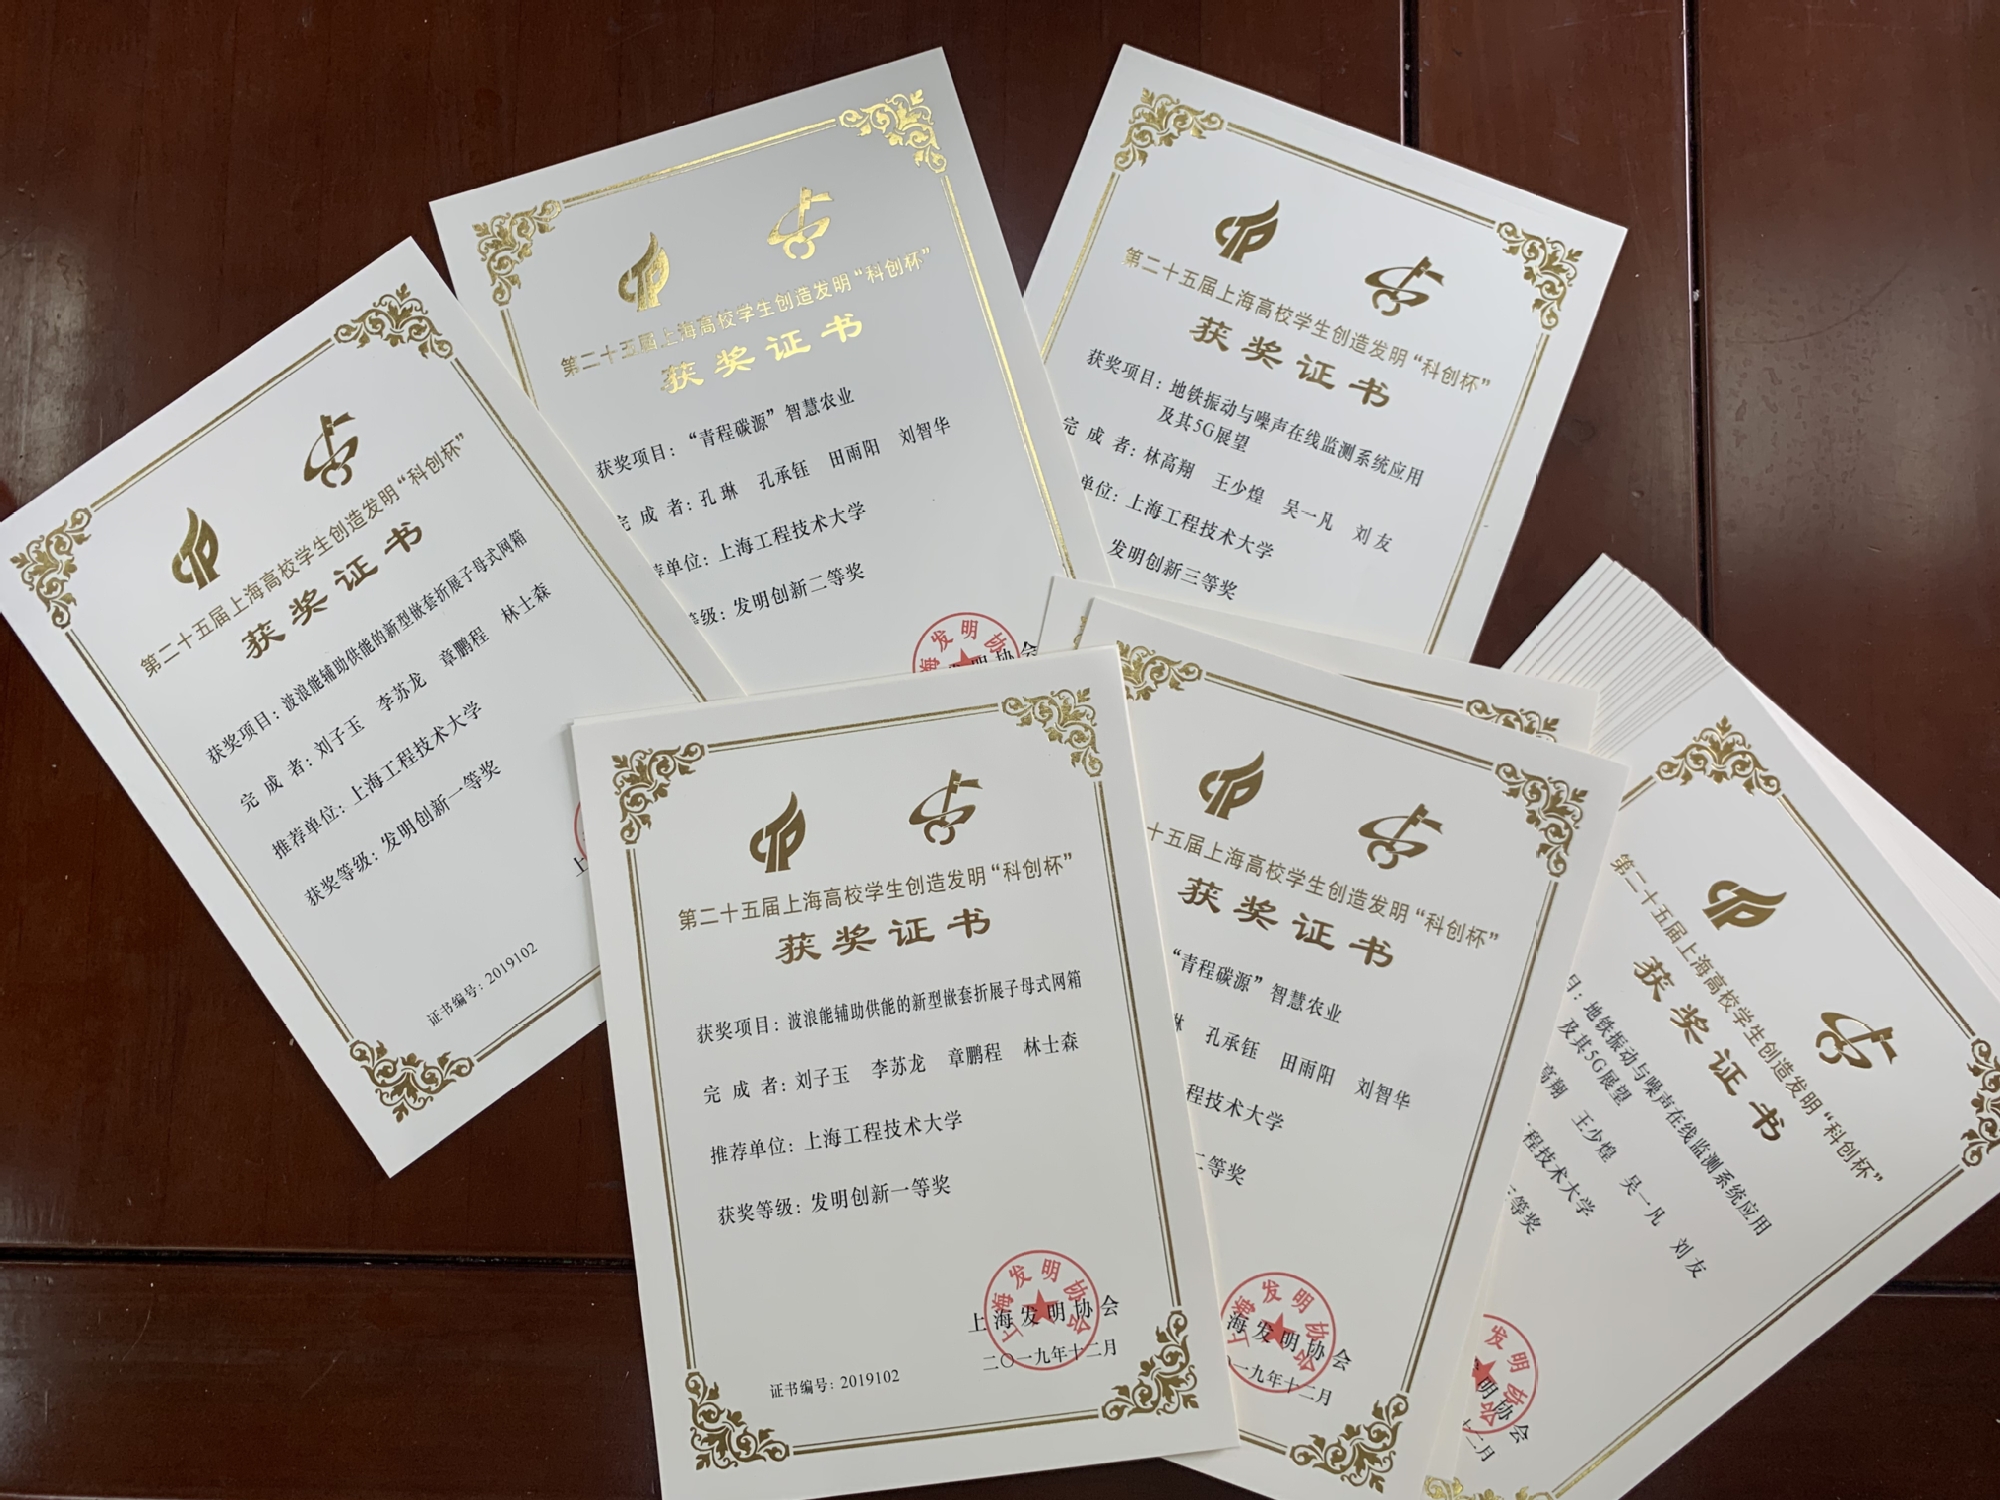 第二十五届上海高校学生创造发明“科创杯”
获奖证书
获奖项目：波浪能辅助供能的新型嵌套折展子母式网箱
完成者：刘子玉 李苏龙 章鹏程 林士森
推荐单位：上海工程技术大学
获奖等级：发明创新一等奖
证书编号：2019102
第二十五届上海高校学生创造发明“科创杯”
获奖证书
获奖项目：“青程碳源”智慧农业
完成者：孔琳 孔承钰 田雨阳 刘智华
荐单位：上海工程技术大学
等级：发明创新二等奖
海发明协
明协会
第二十五届上海高校学生创造发明“科创杯”
获奖证书
获奖项目：地铁振动与噪声在线监测系统应用
及其5G展望
完成者：林高翔 王少煌 吴一凡 刘友
单位：上海工程技术大学
发明创新三等奖
第二十五届上海高校学生创造发明“科创杯”
获奖证书
获奖项目：波浪能辅助供能的新型嵌套折展子母式网箱
完成者：刘子玉 李苏龙 章鹏程 林士森
推荐单位：上海工程技术大学
获奖等级：发明创新一等奖
上海发明协会
上海发明协会
二〇一九年十二月
证书编号：2019102
十五届上海高校学生创造发明“科创杯”
获奖证书
“青程碳源”智慧农业
孔承钰 田雨阳 刘智华
程技术大学
二等奖
上海发明协会
海发明协会
一九年十二月
第二十五届上海高校学生创造发明“科创杯”
获奖证书
目：地铁振动与噪声在线监测系统应用
及其5G展望
高翔 王少煌 吴一凡 刘友
程技术大学
等奖
发明协会
明协会
二月